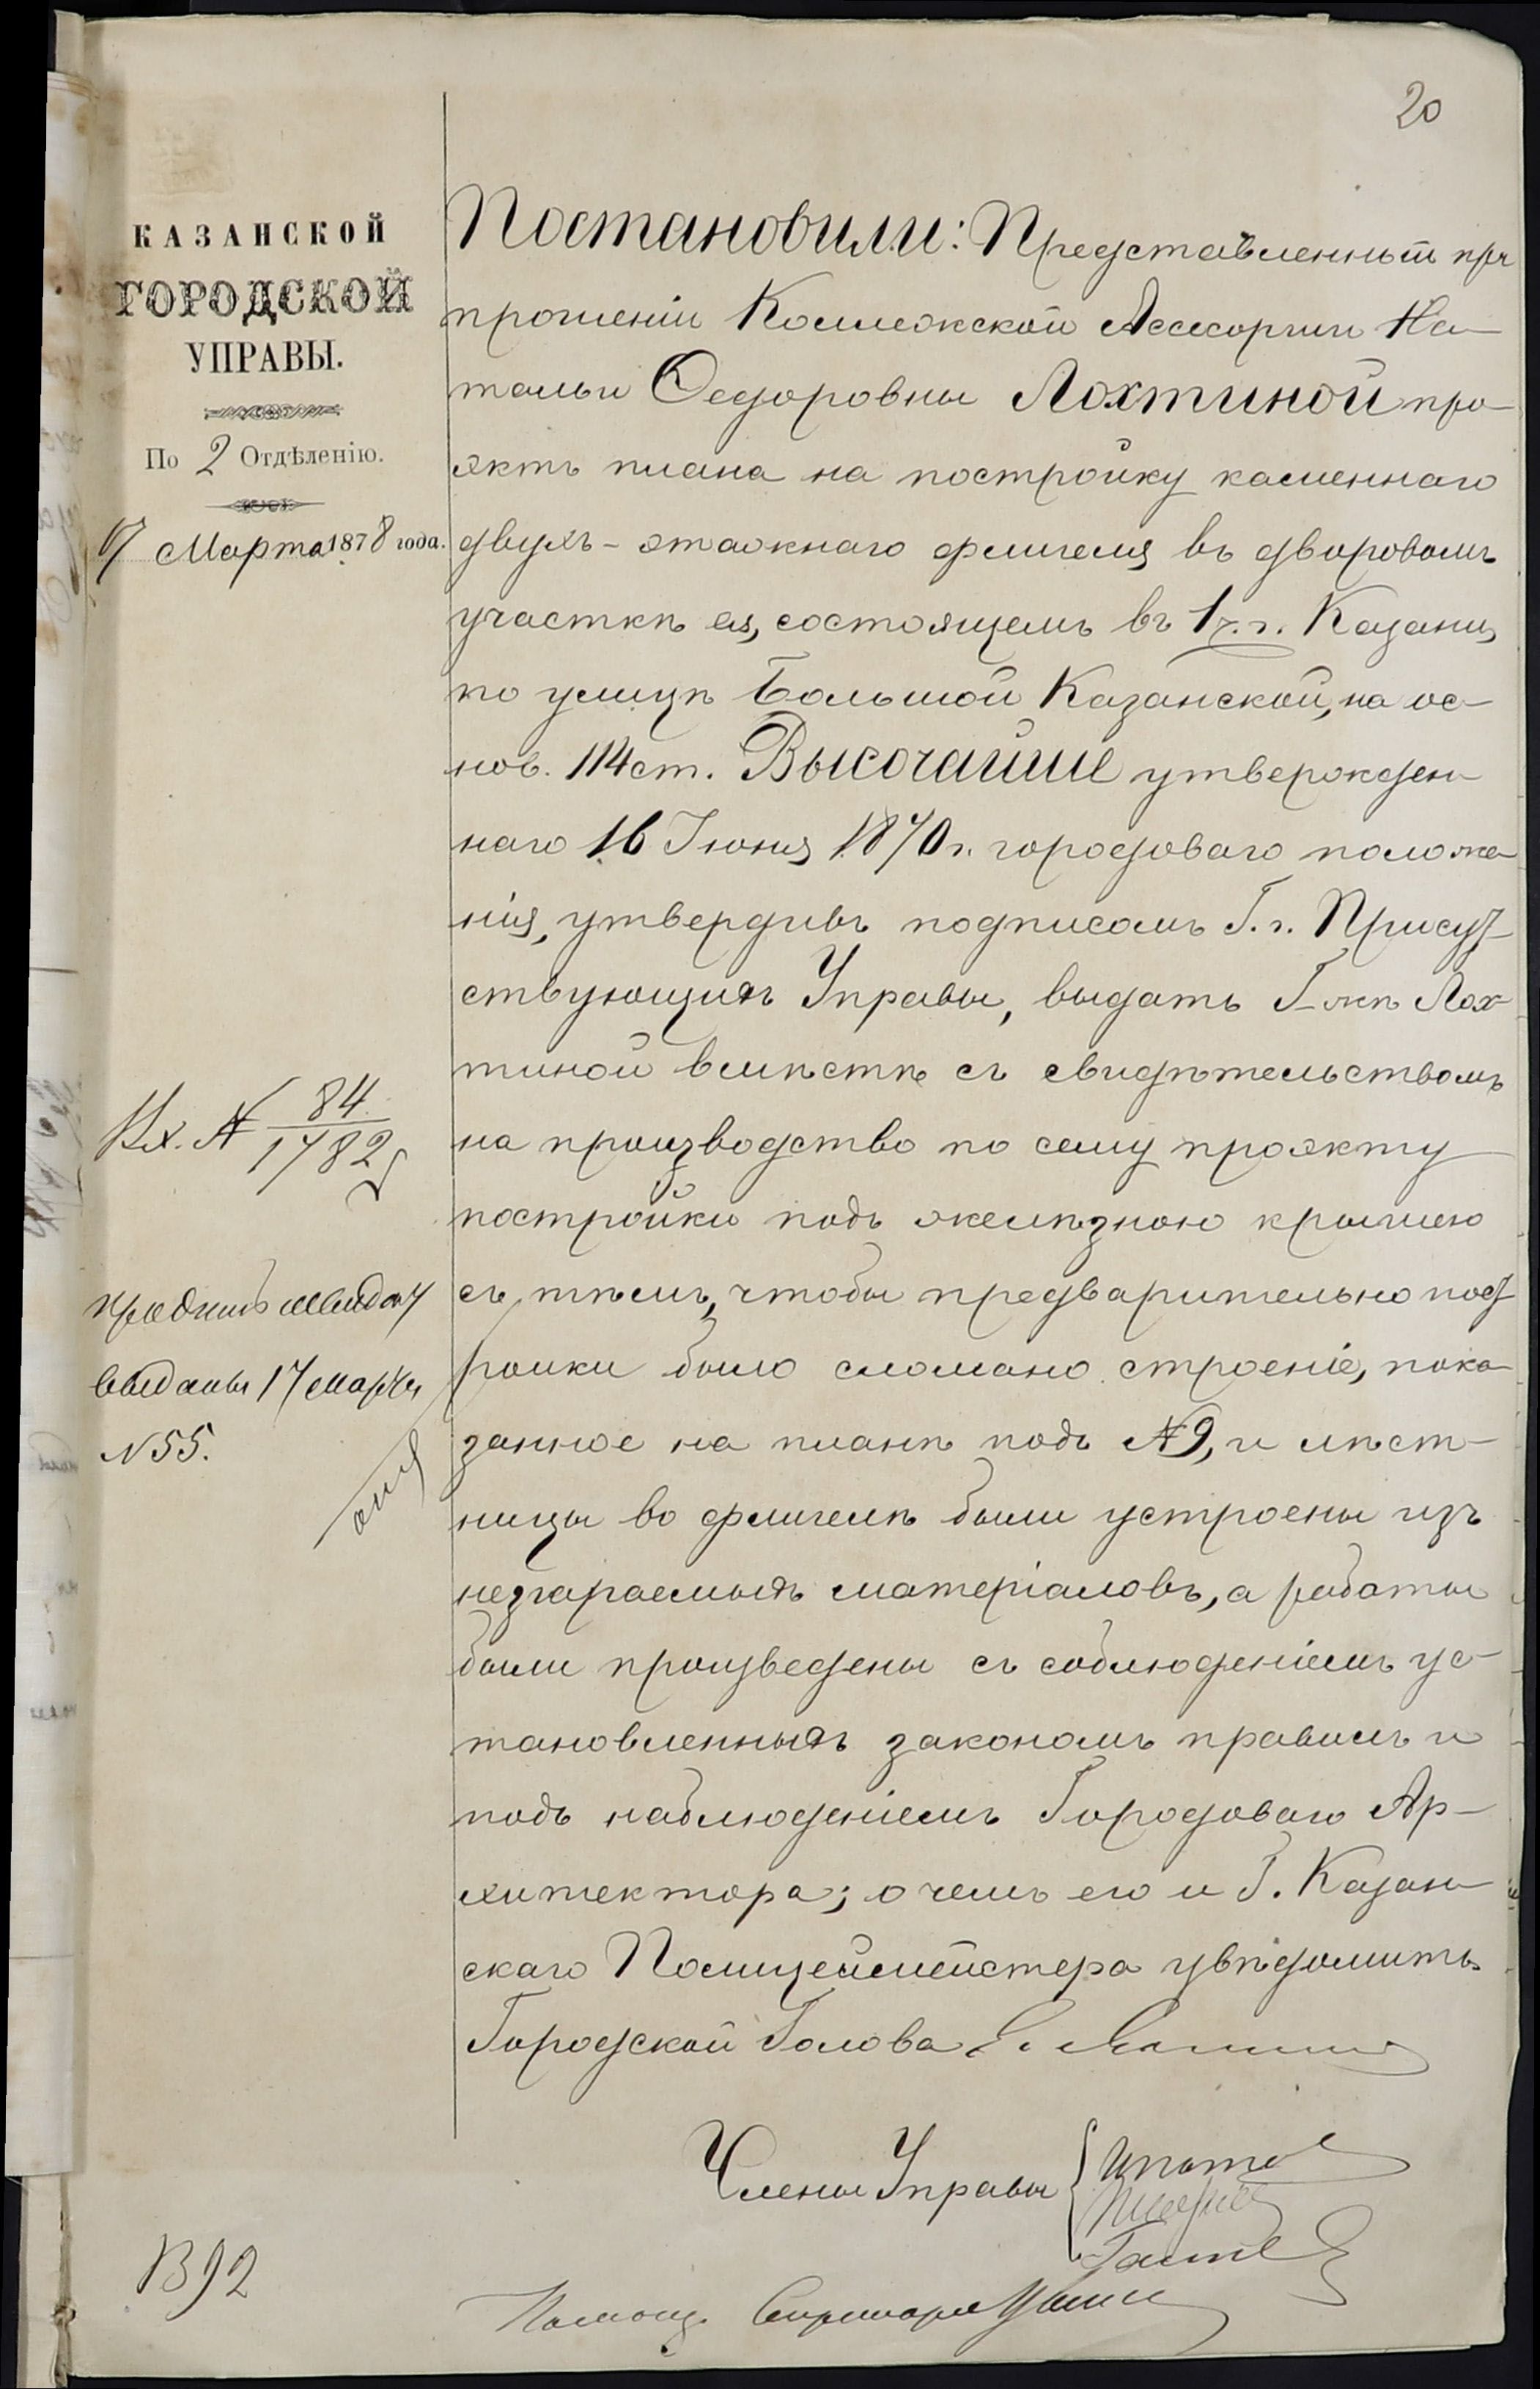 20
КАЗАНСКОЙ
ГОРОДСКОЙ
УПРАВЫ.
По 2 Отдѣленію.
17 Марта 1878 года.
Вх. № 84
1782
выданы 17 марта
№ 55.
В 92
Постановили: Представленный при
прошеніи Коллежской Ассесорши На-
тальи Ѳедоровны Лохтиной про-
эктъ плана на постройку каменнаго
двухъ-этажнаго флигеля въ дворовомъ
участкѣ ея, состоящемъ въ 1 ч. г. Казани,
по улицѣ Большой Казанской, на ос-
нов. 114 ст. Высочайше утвержден-
наго 16 Іюня 1870 г. городоваго положе-
нія, утвердивъ подписомъ Г.г. Присут-
ствующихъ Управы, выдать Г-жѣ Лох-
тиной вмѣстѣ съ свидѣтельствомъ
на производство по сему проэкту
постройки подъ желѣзною крышею
съ тѣмъ, чтобы предварительно пост
ройки было сломано строеніе, пока-
занное на планѣ подъ № 9, и лѣст-
ницы во флигелѣ были устроены изъ
незгараемыхъ матеріаловъ, а работы
были произведены съ соблюденіемъ ус-
тановленныхъ закономъ правилъ и
подъ наблюденіемъ Городоваго Ар-
хитектора; о чемъ его и Г. Казан-
скаго Полицеймейстера увѣдомить.
Городской Голова
Члены Управы
Помощ. Секретаря